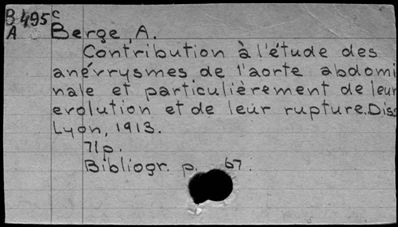 B495c
A
Berge, A.
Contribution à l'étude des
anévrysmes de l'aorte abdomi
nale et particulièrement de leur
evolution et de leur rupture. Diss
Lyon, 1913.
71p.
Bibliogr. p. 67.